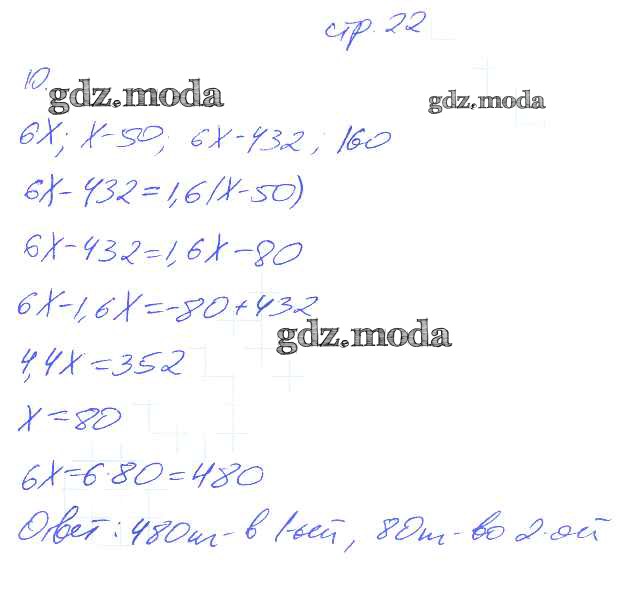 стр. 22
10.
gdz.moda
gdz.moda
6x; x-50; 6x-432; 160
6x-432=1,6(x-50)
6x-432=1,6x-80
6x-1,6x=-80+432
gdz.moda
4,4x=352
x=80
6x=6·80=480
Ответ: 480т-в 1-ый, 80т-во 2-ой